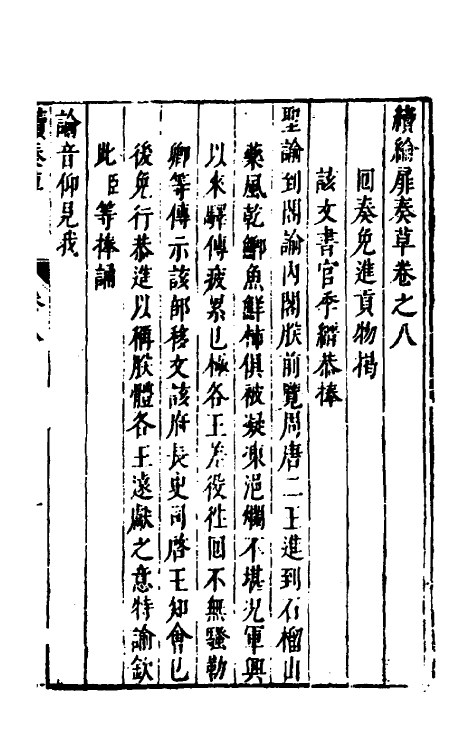 續綸扉奏草卷之八
回奏免進貢物揭
該文書官李縉恭捧
聖諭到閣諭內閣朕前覽周唐二王進到石榴山
藥風乾鯽魚鮮柿俱被凝凍浥爛不堪況軍興
以來驛傳疲累已極各王差役往回不無騷勒
卿等傳示該部移文該府長史司啓王知會已
後免行恭進以稱朕體各王遠獻之意特諭欽
此臣等捧誦
諭音仰見我
續奏草 卷八 一